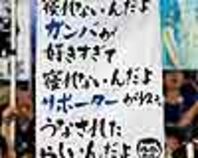 寝れないんだよ
ガンバが
好きすぎて
寝れないんだよ
サポーターが
うなされた
らしいんだよ